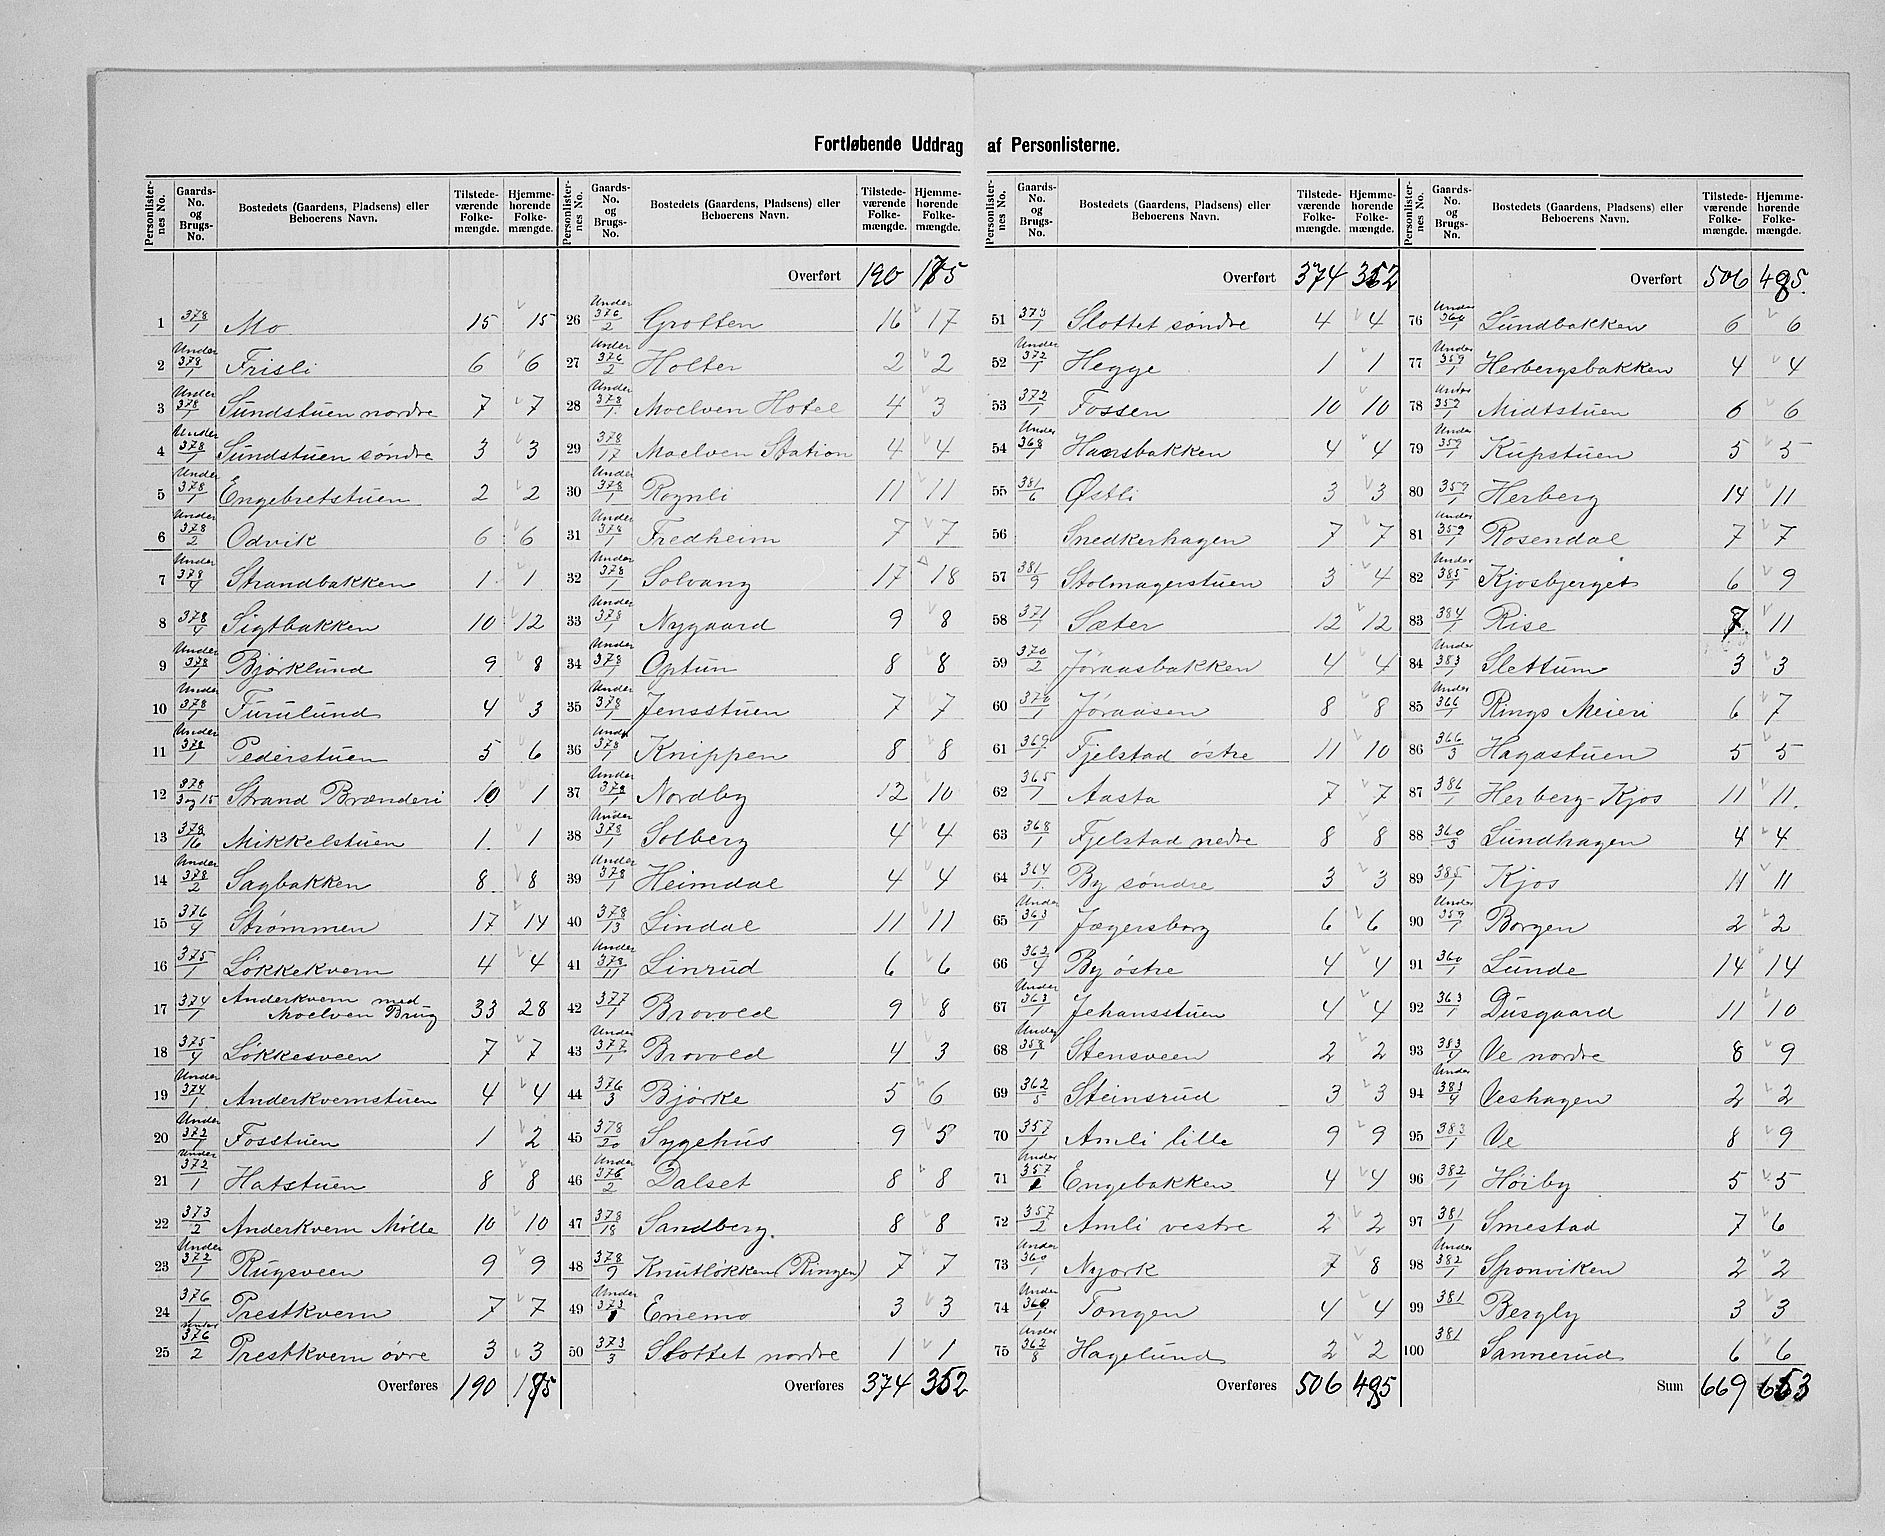 Fortløbende Uddrag af Personlisterne.
Personlister-nes No. | Gaards-No. og Brugs-No. | Bostedets (Gaardens, Pladsens) eller Beboerens Navn. | Tilstede-værende Folke-mængde. | Hjemme-hørende Folke-mængde.
1 | 378/1 | Mo | 15 | 15
2 | Under 378/1 | Frisli | 6 | 6
3 | Under 378/1 | Sundstuen nordre | 7 | 7
4 | Under 378/1 | Sundstuen søndre | 3 | 3
5 | Under 378/1 | Engebretstuen | 2 | 2
6 | Under 378/2 | Odvik | 6 | 6
7 | Under 378/4 | Strandbakken | 1 | 1
8 | 378/4 | Sigtbakken | 10 | 12
9 | Under 378/1 | Bjørklund | 9 | 8
10 | Under 378/1 | Furulund | 4 | 3
11 | Under 378/1 | Pederstuen | 5 | 6
12 | 378/3 og 15 | Strand Brænderi | 10 | 1
13 | 378/16 | Mikkelstuen | 1 | 1
14 | Under 378/2 | Sagbakken | 8 | 8
15 | 376/4 | Strømmen | 17 | 14
16 | 375/1 | Løkkekvern | 4 | 4
17 | 374/1 | Anderkvern med Moelven Brug | 33 | 28
18 | 375/4 | Løkkesveen | 7 | 7
19 | Under 374/1 | Anderkvernstuen | 4 | 4
20 | Under 372/1 | Fosstuen | 1 | 2
21 | Under 372/1 | Hatstuen | 8 | 8
22 | 373/2 | Anderkvern Mølle | 10 | 10
23 | Under 372/1 | Rugsveen | 9 | 9
24 | 376/1 | Prestkvern | 7 | 7
25 | Under 376/2 | Prestkvern øvre | 3 | 3
Overføres | 190 | 175
Personlister-nes No. | Gaards-No. og Brugs-No. | Bostedets (Gaardens, Pladsens) eller Beboerens Navn. | Tilstede-værende Folke-mængde. | Hjemme-hørende Folke-mængde.
Overført | 190 | 175
26 | Under 376/2 | Grotten | 16 | 17
27 | Under 376/2 | Holter | 2 | 2
28 | Under 378/1 | Moelven Hotel | 4 | 3
29 | 378/17 | Moelven Station | 4 | 4
30 | Under 378/1 | Rognli | 11 | 11
31 | Under 378/1 | Fredheim | 7 | 7
32 | Under 378/1 | Solvang | 17 | 18
33 | Under 378/1 | Nygaard | 9 | 8
34 | Under 378/1 | Optun | 8 | 8
35 | Under 378/1 | Jensstuen | 7 | 7
36 | Under 378/1 | Knippen | 8 | 8
37 | Under 378/1 | Nordby | 12 | 10
38 | Under 378/1 | Solberg | 4 | 4
39 | Under 378/1 | Heimdal | 4 | 4
40 | 378/13 | Lindal | 11 | 11
41 | Under 378/11 | Linrud | 6 | 6
42 | 377/1 | Brovold | 9 | 8
43 | Under 377/1 | Brovold | 4 | 3
44 | 376/3 | Bjørke | 5 | 6
45 | 378/20 | Sygehus | 9 | 5
46 | Under 376/2 | Dalset | 8 | 8
47 | 378/18 | Sandberg. | 8 | 8
48 | 378/9 | Knutløkken (Ringen) | 7 | 7
49 | Under 373/1 | Enemo | 3 | 3
50 | 373/3 | Slottet nordre | 1 | 1
Overføres | 374 | 352
Personlister-nes No. | Gaards-No. og Brugs-No. | Bostedets (Gaardens, Pladsens) eller Beboerens Navn. | Tilstede-værende Folke-mængde. | Hjemme-hørende Folke-mængde.
Overført | 374 | 352
51 | 373/1 | Slottet søndre | 4 | 4
52 | Under 372/1 | Hegge | 1 | 1
53 | 372/1 | Fossen | 10 | 10
54 | Under 368/1 | Hansbakken | 4 | 4
55 | 381/6 | Østli | 3 | 3
56 | Snedkerhagen | 7 | 7
57 | 381/9 | Stolmagerstuen | 3 | 4
58 | 371/1 | Sæter | 12 | 12
59 | 370/2 | Jøraasbakken | 4 | 4
60 | 370/1 | Jøraasen | 8 | 8
61 | 369/1 | Fjelstad østre | 11 | 10
62 | 365/1 | Aasta | 7 | 7
63 | 368/1 | Fjelstad nedre | 8 | 8
64 | 364/1 | By søndre | 3 | 3
65 | Under 363/1 | Jægersborg | 6 | 6
66 | 362/4 | By østre | 4 | 4
67 | Under 363/1 | Jehansstuen | 4 | 4
68 | Under 358/1 | Stensveen | 2 | 2
69 | 362/5 | Steinsrud | 3 | 3
70 | 357/1 | Amli lille | 9 | 9
71 | Under 357/1 | Engebakken | 4 | 4
72 | 357/2 | Amli vestre | 2 | 2
73 | Under 360/1 | Nyork | 7 | 8
74 | Under 360/1 | Tongen | 4 | 4
75 | Under 362/8 | Hagelund | 2 | 2
Overføres | 506 | 485
Personlister-nes No. | Gaards-No. og Brugs-No. | Bostedets (Gaardens, Pladsens) eller Beboerens Navn. | Tilstede-værende Folke-mængde. | Hjemme-hørende Folke-mængde.
Overført | 506 | 485.
76 | Under 360/1 | Lundbakken | 6 | 6
77 | Under 359/1 | Herbergsbakken | 4 | 4
78 | Under 359/1 | Midtstuen | 6 | 6
79 | Under 359/1 | Kupstuen | 5 | 5
80 | 359/1 | Herberg | 14 | 11
81 | Under 359/1 | Rosendal | 7 | 7
82 | Under 385/1 | Kjosbjerget | 6 | 9
83 | 384/1 | Rise | 7. | 11
84 | Under 383/1 | Slettum | 3 | 3
85 | Under 366/1 | Rings Meieri | 6 | 7
86 | 366/3 | Hagastuen | 5 | 5
87 | 386/1 | Herberg-Kjos | 11 | 11.
88 | 360/3 | Lundhagen | 4 | 4
89 | 385/1 | Kjos | 11 | 11
90 | Under 359/1 | Borgen | 2 | 2
91 | 360/1 | Lunde | 14 | 14
92 | 363/1 | Dusgaard | 11 | 10
93 | 383/4 | Ve nordre | 8 | 9
94 | Under 383/4 | Veshagen | 2 | 2
95 | 383/1 | Ve | 8 | 9
96 | 382/1 | Høiby | 5 | 5
97 | 381/1 | Smestad | 7 | 6
98 | Under 382/1 | Sponviken | 2 | 2
99 | 381 | Bergly | 3 | 3
100 | 381 | Sannerud | 6 | 6
Sum | 669 | 653